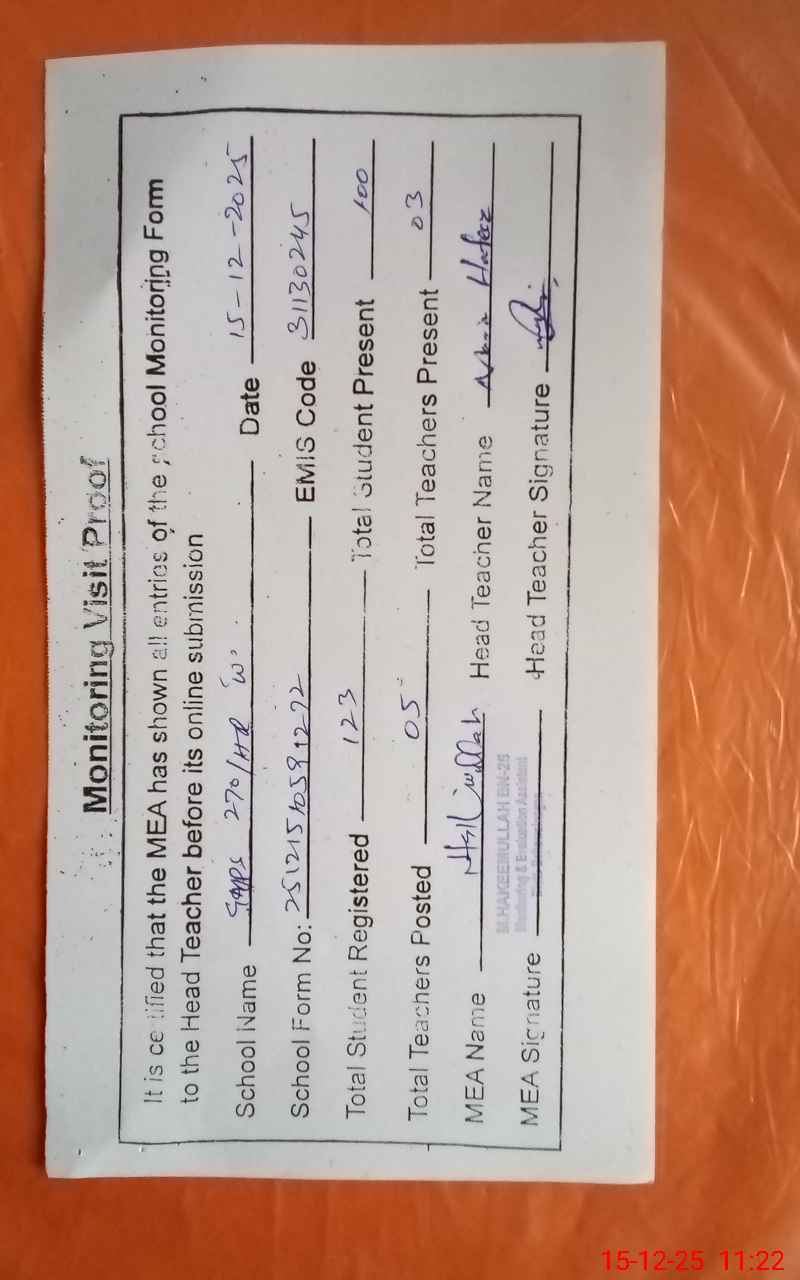 Monitoring Visit Proof
It is certified that the MEA has shown all entries of the school Monitoring Form
to the Head Teacher before its online submission
School Name GGPS 270/HR 'W' Date 15-12-2025
School Form No: EMIS Code 31130245
Total Student Registered 123 Total Student Present 100
Total Teachers Posted 05 Total Teachers Present 03
MEA Name Head Teacher Name Hafeez
M.HAKEEMULLAH BN-25
Monitoring & Evaluation Assistant
MEA Signature Head Teacher Signature
15-12-25 11:22